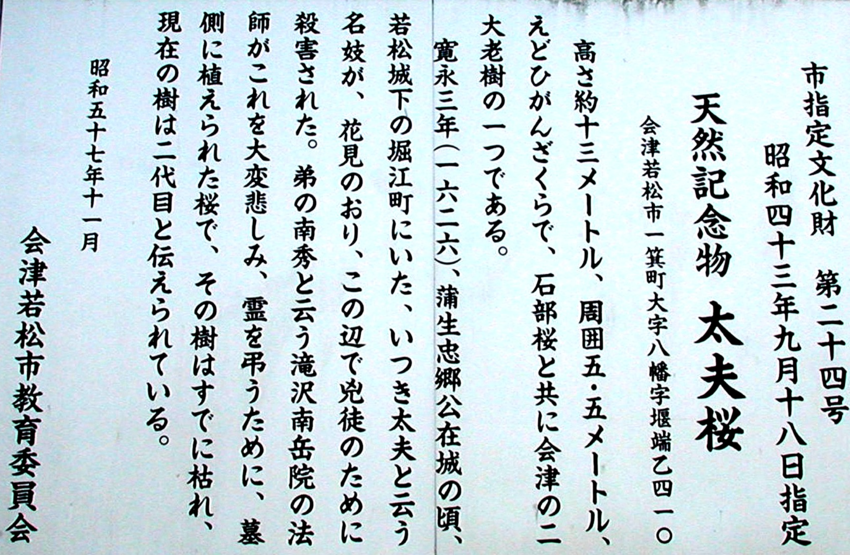 市指定文化財　第二十四号
昭和四十三年九月十八日指定
天然記念物　太夫桜
会津若松市一箕町大字八幡字堰端乙四一〇
高さ約十三メートル、周囲五・五メートル、
えどひがんざくらで、石部桜と共に会津の二
大老樹の一つである。
寛永三年（一六二六）、蒲生忠郷公在城の頃、
若松城下の堀江町にいた、いつき太夫と云う
名妓が、花見のおり、この辺で兇徒のために
殺害された。弟の南秀と云う滝沢南岳院の法
師がこれを大変悲しみ、霊を弔うために、墓
側に植えられた桜で、その樹はすでに枯れ、
現在の樹は二代目と伝えられている。
昭和五十七年十一月
会津若松市教育委員会